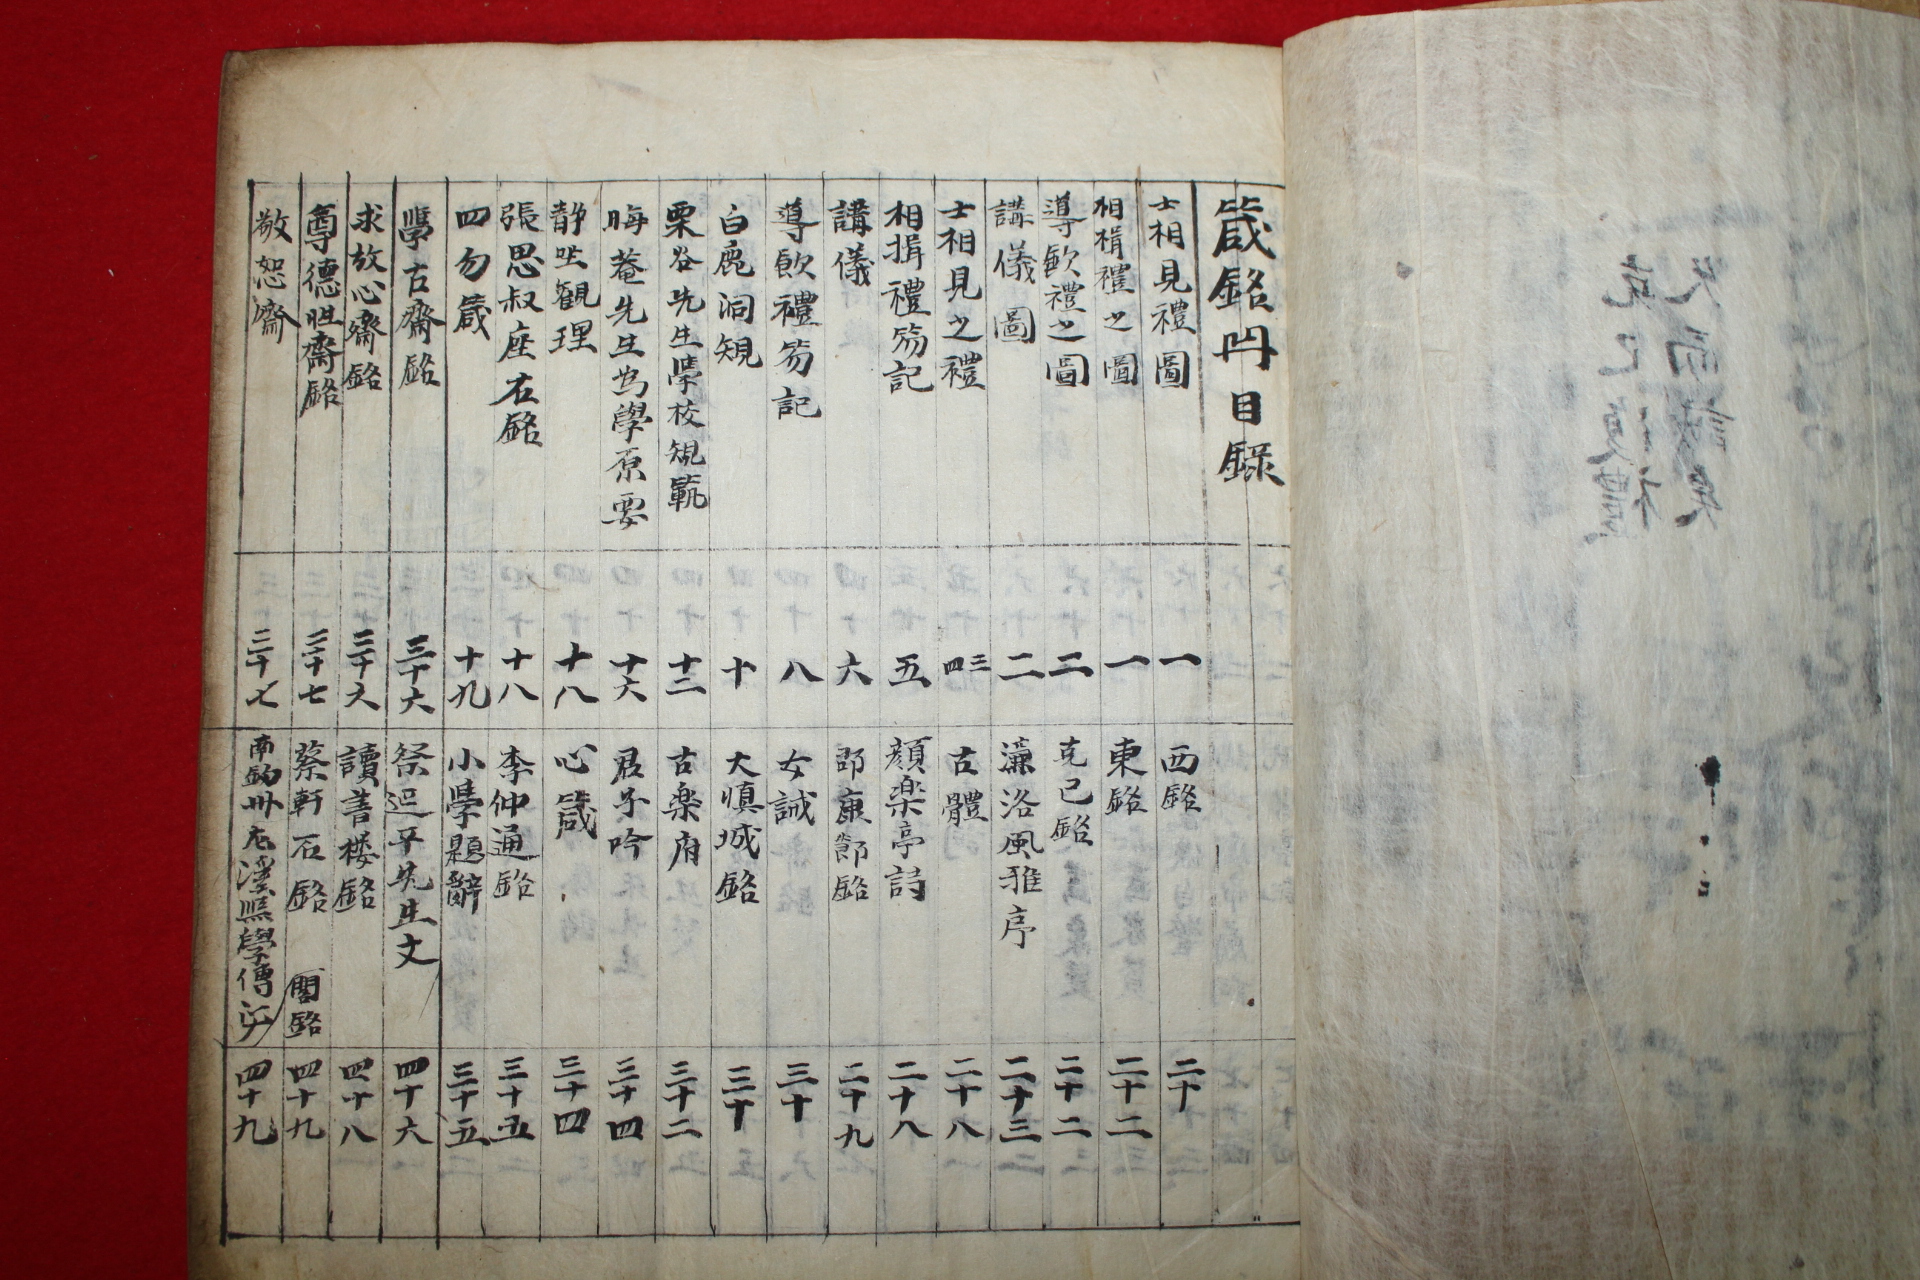 箴銘冊目録
士相見禮圖 一
相揖禮之圖 一
導飮禮之圖 二
講儀圖 二
士相見之禮 三四
相揖禮笏記 五
講儀 六
導飮禮笏記 八
白鹿洞規 十
栗谷先生學校規範 十二
晦菴先生為學原要 十六
靜坐観理 十八
張思叔座右銘 十八
四勿箴 十九
學古齋銘 三十六
求放心齋銘 三十六
尊德性齋銘 三十七
敬恕齋 三十七
西銘 二十
東銘 二十二
克己銘 二十二
濂洛風雅序 二十三
古體 二十八
顔楽亭詩 二十八
邵康節銘 二十九
女誡 三十
大慎城銘 三十
古楽府 三十二
君子吟 三十四
心箴 三十四
李仲通銘 三十五
小學題辭 三十五
祭延平先生文 四十六
讀書楼銘 四十八
蔡軒石銘 閣銘 四十九
學傳 四十九